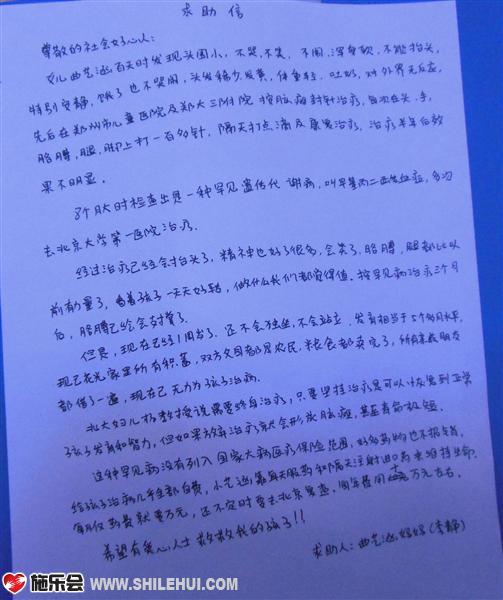 求助信
尊敬的社会好心人:
女儿曲艺涵百天时发现头围小,不哭、不笑、不闹、浑身软,不能抬头,
特别安静,饿了也不哭闹,头发稀少发黄,体重轻,吐奶,对外界无反应,
先后在郑州市儿童医院及郑大三附院按脑瘫封针治疗,每次在头、手、
胳膊,腿,脚上打一百多针,隔天打点滴及康复治疗,治疗半年后效
果不明显。
8个月大时检查出是一种罕见遗传代谢病,叫甲基丙二酸血症,多次
去北京大学第一医院治疗。
经过治疗已经会抬头了,精神也好了很多,会笑了,胳膊,腿都比以
前有力量了,看着孩子一天天好转,做什么我们都觉得值。按罕见病治疗三个月
后,胳膊已经会对撑了。
但是,现在已经1周岁了,还不会独坐,不会站立,发育相当于5个月水平,
现已花光家里所有积蓄,双方父母都是农民,粮食都卖完了,所有亲戚朋友
都借了一遍,现在已无力为孩子治病。
北大妇儿杨教授说需要终身治疗,只要坚持治疗是可以恢复到正常
孩子发育和智力,但如果放弃治疗就会形成脑瘫,甚至寿命极短。
这种罕见病没有列入国家大病医疗保险范围,好多药物也不报销,
给孩子治病几乎全部自费,小艺涵靠每天服药和隔天注射进口药来维持生命,
每月仅药费就要万元,还不定时要去北京复查,周年费用十万元左右。
希望有爱心人士救救我的孩子!!
求助人:曲艺涵妈妈(李静)
施乐会 WWW.SHILEHUI.COM